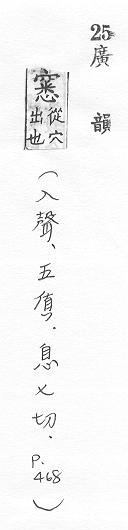 25 廣韻
窸 從穴出也
（入聲、五質．息七切．P. 468）